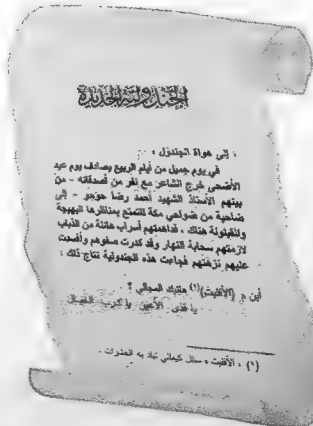 الجندولية الجديدة
إلى هواة الجندول :
في يوم جميل من أيام الربيع يصادف يوم عيد
الأضحى خرج الشاعر مع نفر من أصدقائه - من
بينهم الأستاذ الشهيد أحمد رضا حوحو - إلى
ضاحية من ضواحي مكة للتمتع بمناظرها البهيجة
وللقيلولة هناك ، فداهمتهم أسراب هائلة من الذباب
لازمتهم سحابة النهار وقد كدرت صفوهم وأفسدت
عليهم نزهتهم فجاءت هذه الجندولية نتاج ذلك :
أين م (الأفليت)(١) هاتيك السوالي ؟
يا فتى الأعين يا كرب
(١) ، الأفليت ، سائل كيماني تباد به الحشرات .